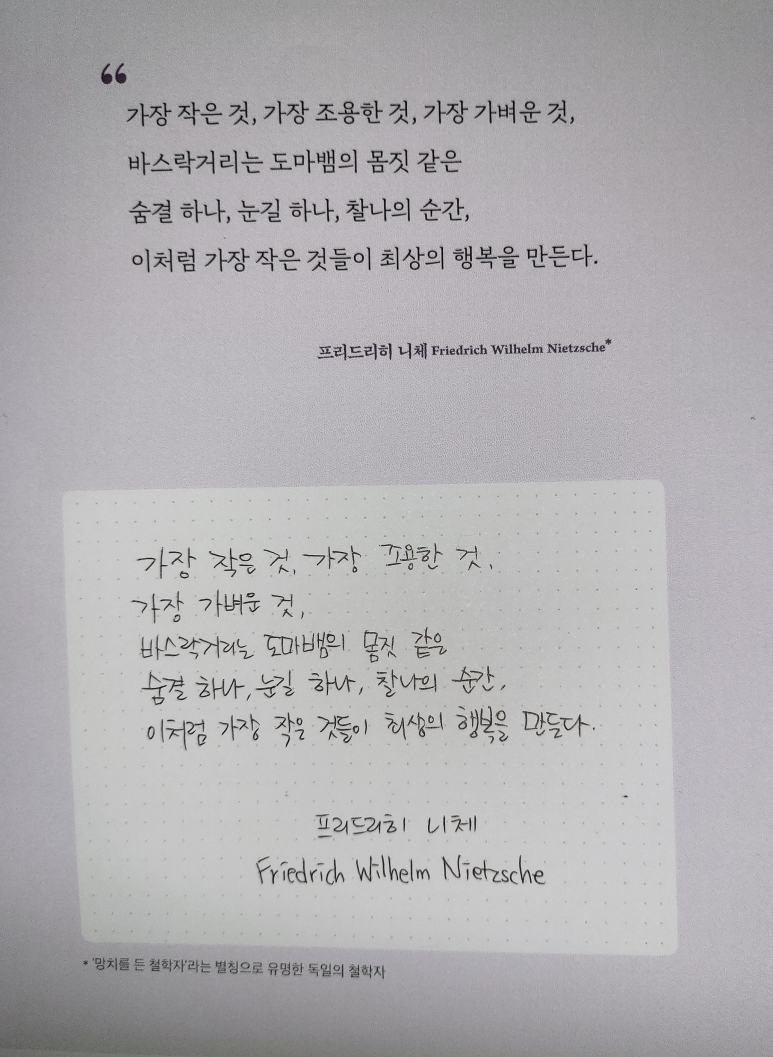 “
가장 작은 것, 가장 조용한 것, 가장 가벼운 것,
바스락거리는 도마뱀의 몸짓 같은
숨결 하나, 눈길 하나, 찰나의 순간,
이처럼 가장 작은 것들이 최상의 행복을 만든다.
프리드리히 니체 Friedrich Wilhelm Nietzsche*
가장 작은 것, 가장 조용한 것,
가장 가벼운 것,
바스락거리는 도마뱀의 몸짓 같은
숨결 하나, 눈길 하나, 찰나의 순간,
이처럼 가장 작은 것들이 최상의 행복을 만든다.
프리드리히 니체
Friedrich Wilhelm Nietzsche
* '망치를 든 철학자'라는 별칭으로 유명한 독일의 철학자